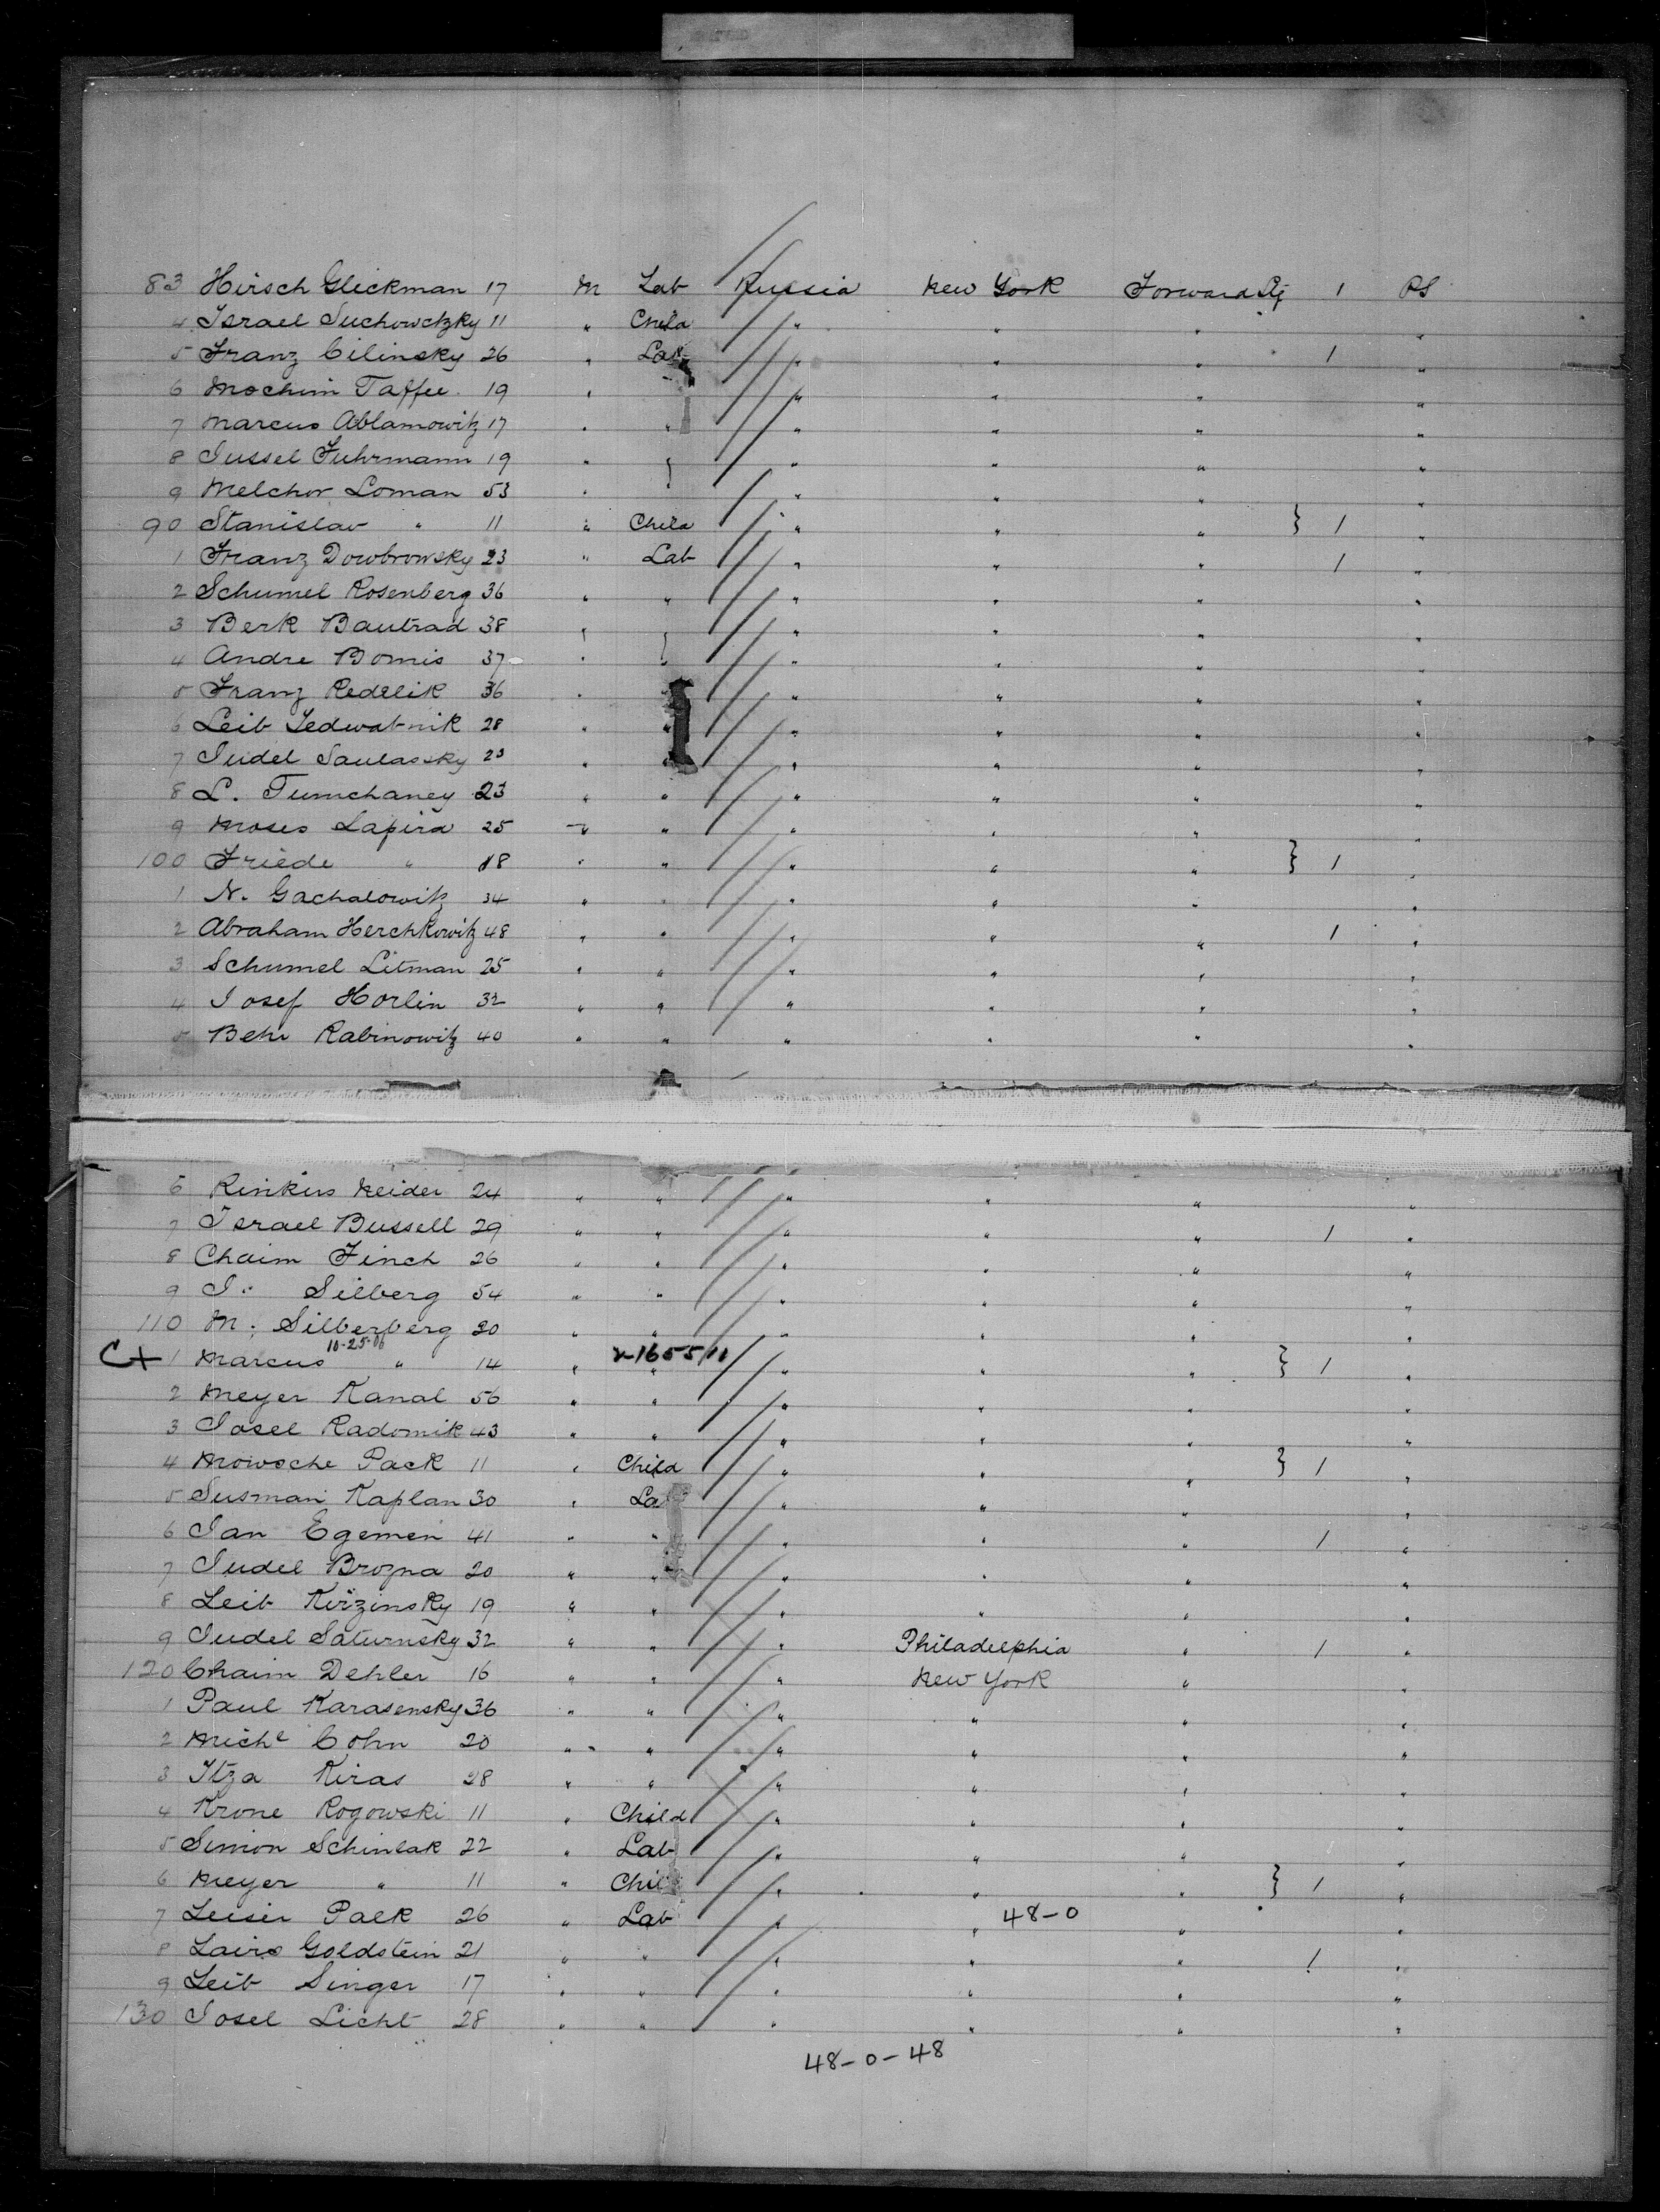 83 Hirsch Glickman 17 M Lab Russia New York Forward Stg 1 PS
4 Israel Suchowetzky 11 " Child " " " "
5 Franz Cilinsky 26 " Lab " " " 1 "
6 Mochim Taffee 19 " " " " "
7 Marcus Ablamowitz 17 " " " " " "
8 Jussel Fuhrmann 19 " " " " " "
9 Melchor Loman 53 " " " " "
90 Stanislav " 11 " Child " " " } 1 "
1 Franz Dowbrowsky 23 " Lab " " " 1 "
2 Schumel Rosenberg 36 " " " " " "
3 Berk Bautrad 38 " " " " " "
4 Andre Bomis 37 " " " " " "
5 Franz Redelik 36 " " " " " "
6 Leib Jedwabnik 28 " " " " " "
7 Judel Saulassky 23 " " " " " "
8 L. Tumchaney 23 " " " " " "
9 Moses Lapira 25 " " " " " "
100 Friede " 18 " " " " " } 1 "
1 N. Gachalowitz 34 " " " " " "
2 Abraham Herchkowitz 48 " " " " " 1 "
3 Schumel Litman 25 " " " " " "
4 Josef Horlin 32 " " " " " "
5 Behr Rabinowitz 40 " " " " " "
6 Rinkus Neider 24 " " " " " "
7 Israel Bussell 29 " " " " " 1 "
8 Chaim Finch 26 " " " " " "
9 J. Silberg 54 " " " " " "
110 M. Silberberg 20 " " " " " "
10-25-06
C+ 1 Marcus " 14 " 2-165511 " " " " } 1 "
2 Meyer Kanal 56 " " " " " "
3 Josel Radomik 43 " " " " " "
4 Mowsche Pack 11 " Child " " " } 1 "
5 Susman Kaplan 30 " La " " " "
6 Jan Egemen 41 " " " " " 1 "
7 Judel Brozna 20 " " " " " "
8 Leib Kirzinsky 19 " " " " " "
9 Judel Saturnsky 32 " " " Philadelphia " 1 "
120 Chaim Dehler 16 " " " New York " "
1 Paul Karasensky 36 " " " " " "
2 Michl Cohn 20 " " " " " "
3 Itza Kiras 28 " " " " " "
4 Krone Rogowski 11 " Child " " " "
5 Simon Schinlak 22 " Lab " " " "
6 Meyer " 11 " Chil " " " } 1 "
7 Leiser Palk 26 " Lab " " 48-0 " "
8 Lairs Goldstein 21 " " " " " 1 "
9 Leib Singer 17 " " " " " "
130 Josel Licht 28 " " " " " "
48-0-48